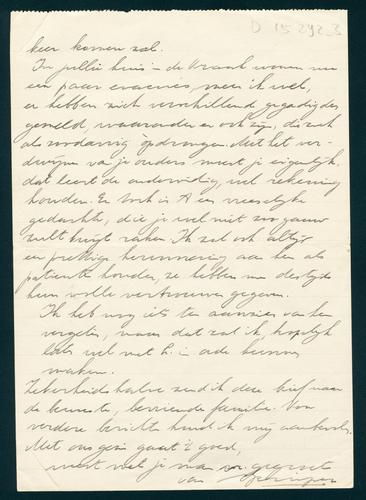 D 15292_3
keer komen zal.
In jullie huis in de Kraak wonen nu
een paar evacués, meen ik wel,
er hebben zich verschillende gegadigden
gemeld, waaronder er ook zijn, die zich
als zoodanig opdrongen. Met het ver-
dwijnen van je ouders moet je eigenlijk,
dat leert de ondervinding, wel rekening
houden. Er toch is 't een vreeselijke
gedachte, die je wel niet zoo gauw
zult kwijt raken. Ik zal ook altijd
een prettige herinnering aan hen als
patienten houden, ze hebben me destijds
hun volle vertrouwen gegeven.
Ik heb nog iets ten aanzien van hen
vergeten, maar dat zal ik, hopelijk
later wel met in orde kunnen
maken.
Zekerheidshalve zend ik deze brief naar
de bewuste, bevriende familie. Voor
verdere berichten houd ik mij aanbevolen.
Met ons gezin gaat 't goed,
weest met je man gegroet
van